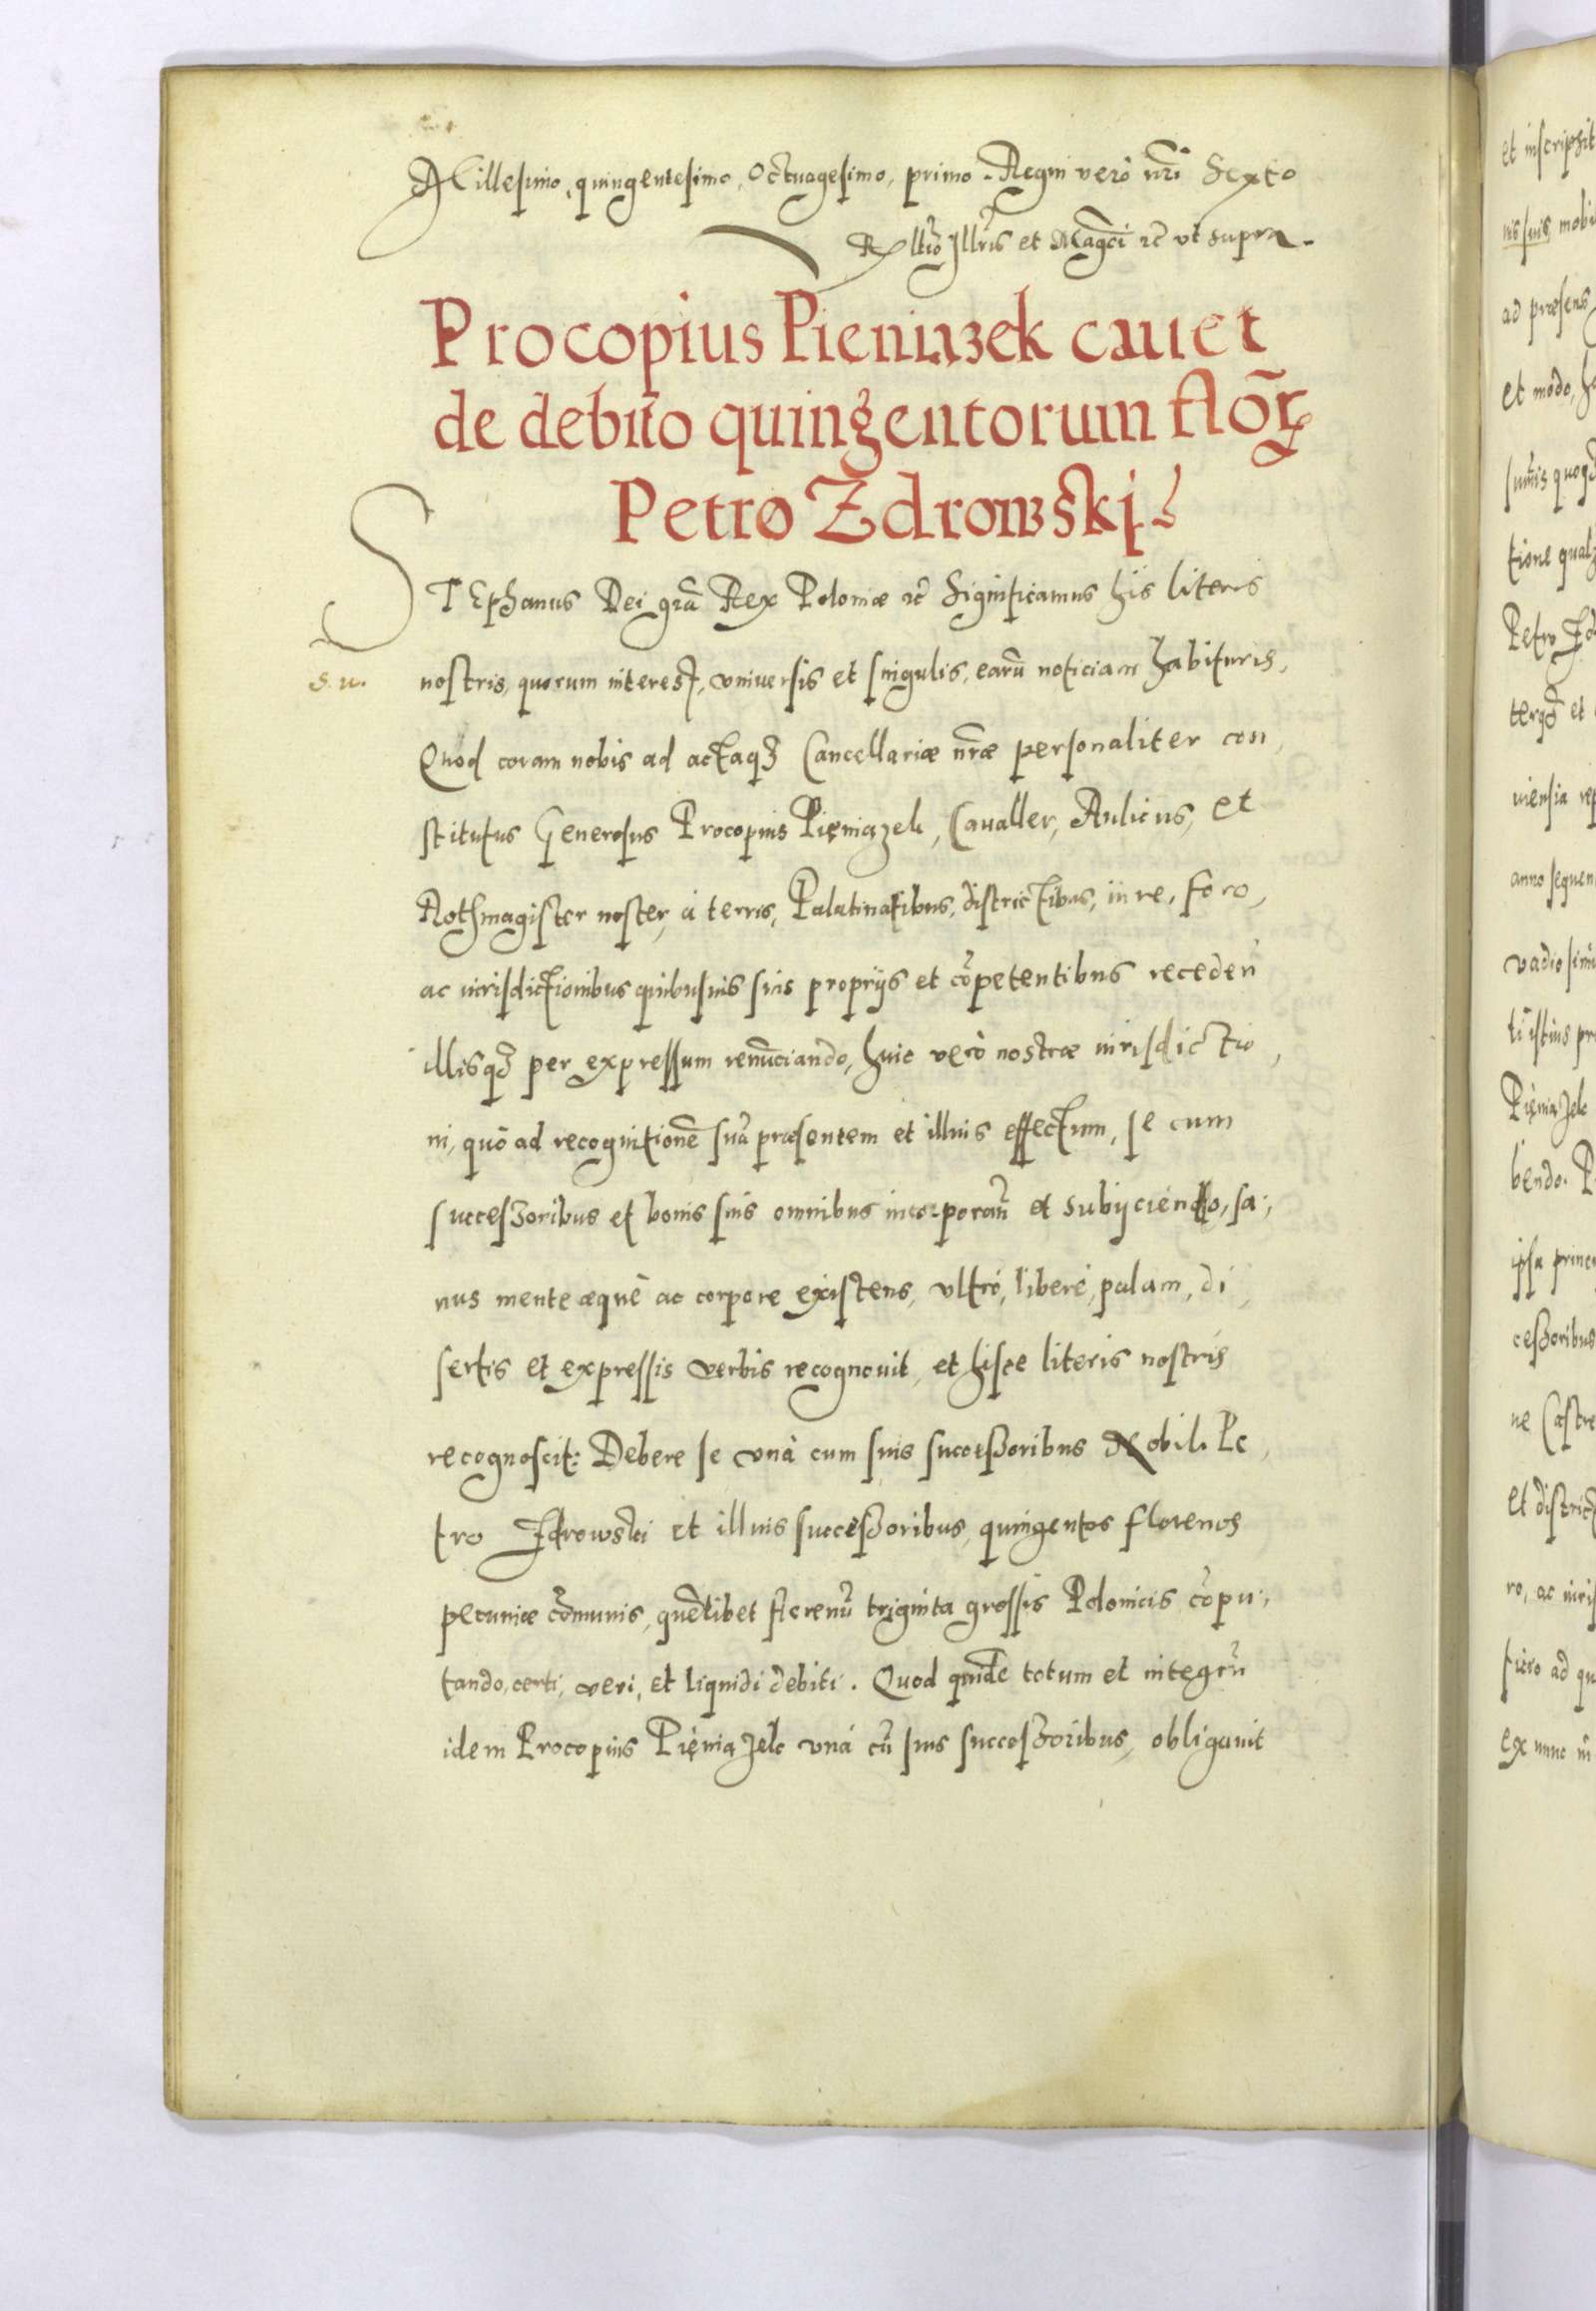 Millesimo, quingentesimo, Octuagesimo, primo. Regni verò nrī Sexto
Rllĩo Jllr̃is et Magc̃i rc̃ vt supra.
Procopius Pieniazek cauet
de debito quingentorum flor̃
Petro Zdrowski.
STEphanus Dei grã Rex Poloniæ rc̃ Significamus hijs literis
s. u. nostris, quorum interest, vniuersis et singulis, earũ noticiam habituris,
Quod coram nobis ad actaq3 Cancellariæ nr̃æ personaliter con,
stitutus Generosus Procopius Pięniązek, Cavaller, Aulicus, et
Rothmagister noster, à terris, Palatinatibus, districtibus, iure, foro,
ac iurisdictionibus quibusuis suis proprijs et cõpetentibus recedeñ
illisq3 per expressum renũciando, huic verò nostræ iurisdictio,
ni, quo ad recognitionẽ suã præsentem et illius effectum, se cum
successoribus et bonis suis omnibus incorporañ et subijciendo, sa,
nus mente æquè ac corpore existens, vltrò, liberè, palam, di,
sertis et expressis verbis recognouit, et hisce literis nostris
recognoscit: Debere se vnà cum suis successoribus Nobili Pe,
tro Zdrowski et illius successoribus, quingentos florenos
pecuniæ cõmunis, quẽlibet florenũ triginta grossis Polonicis cõpu,
tando, certi, veri, et liquidi debiti. Quod quidẽ totum et integrũ
idem Procopius Pięniązek vnà cũ suis successoribus, obligauit
et inscripsit
nis suis mobi
ad præsens
et modo, h
sum̃is quoq3
tione qual
Petro Zd
terq3 et
uiensia rep
anno sequen
vadio simi
ti istius pr
Pięniązek
bendo. P
ipsa prin
cessoribus
ne Castre
et district
ro, ac iuris
tiero ad qu
ex nunc